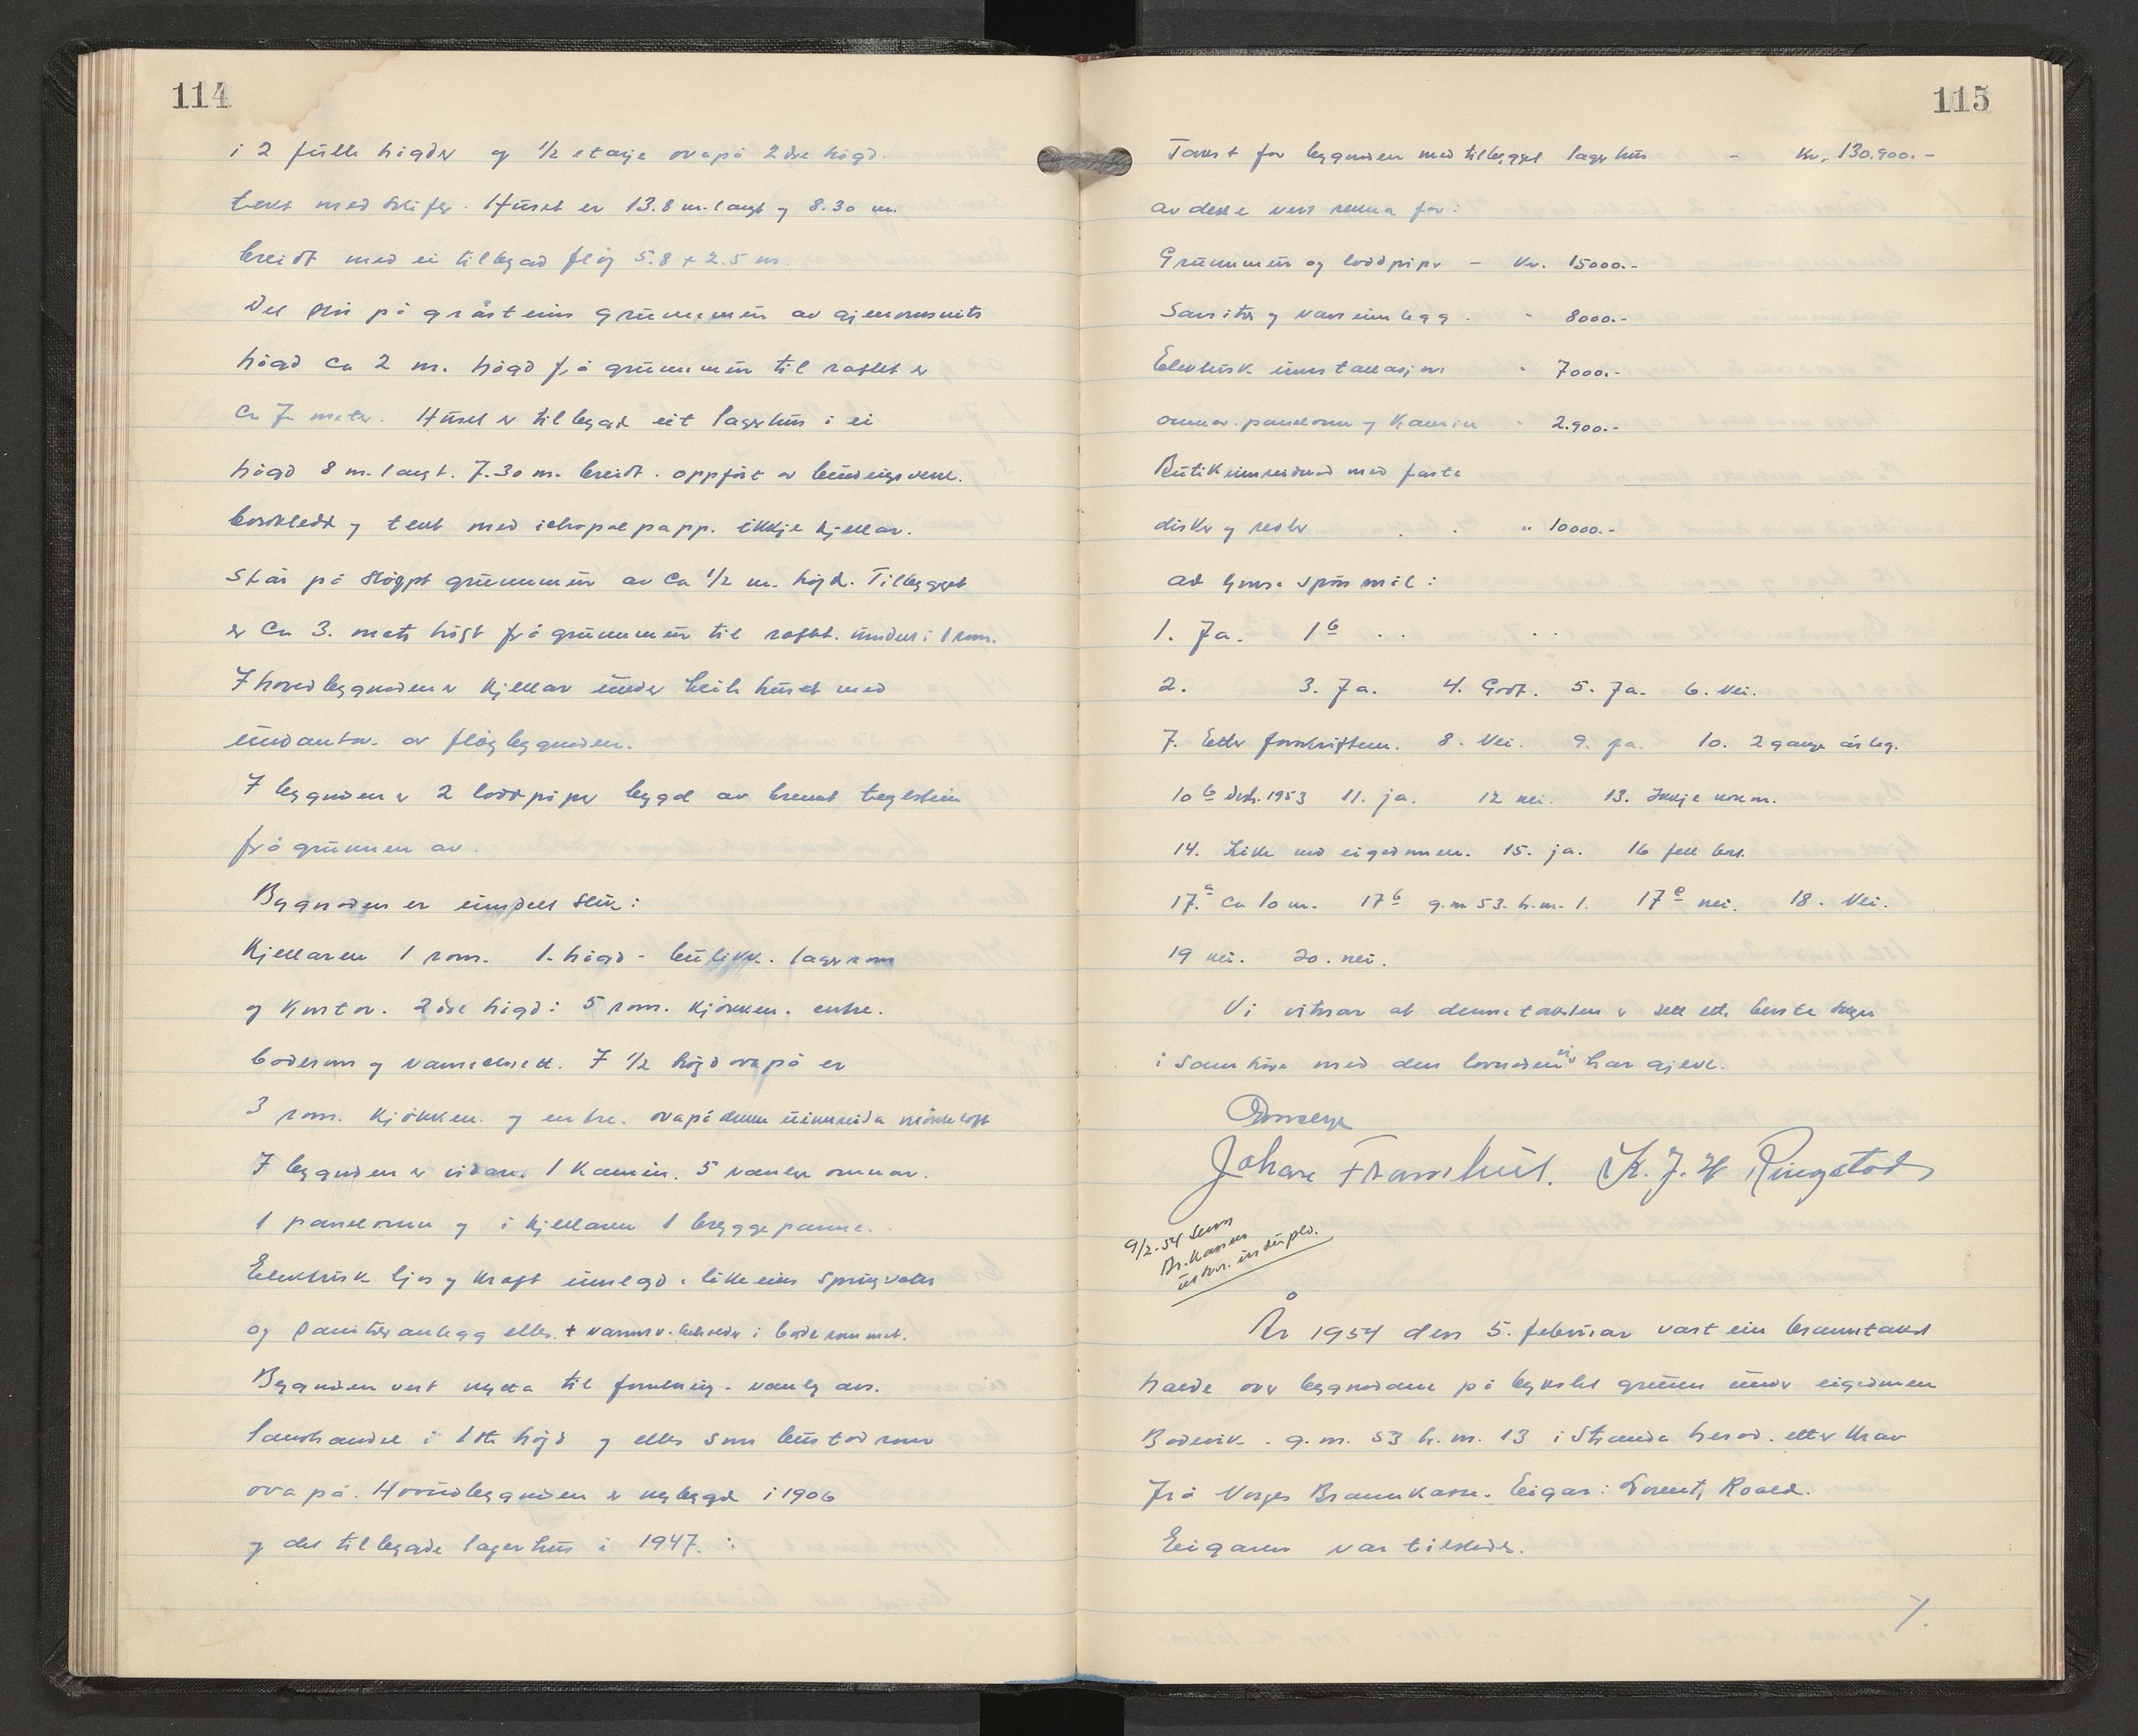 114
i 2 fulle högder og 1/2 etasje ovapå 2dre högd.
tekt med skifer. Huset er 13.8 m. langt og 8.30 m.
breidt med ei tilbygd flöy 5.8 + 2.5 m.
Det står på gråsteins grunnmur av gjennomsnits
högd ca 2 m. högd frå grunnmur til raftet er
ca 7 meter. Huset er tilbygd eit lagerhus i ei
högd 8 m. langt. 7.30 m. breidt. oppfört av bindingsverk.
bordkledd og tekt med ichopal papp. ikkje kjellar.
Står på stöypt grunnmur av ca 1/2 m. högd. Tilbygget
er ca 3. meter högt frå grunnmur til raftet. inndelt i 1 rom.
I hovedbygnaden er kjellar under heile huset med
unndantak av flöybygnaden.
I bygnaden er 2 loddpiper bygd av brennt teglstein
frå grunnen av.
Bygnaden er inndelt slik:
Kjellaren 1 rom. 1. högd - butikk. lagerrom
og kontor. 2dre högd: 5 rom. kjökken. entre.
baderom og vannklosett. I 1/2 högd ovapå er
3 rom. kjökken. og entre. ovapå denne uinnreida mörkeloft
I bygnaden er vidare. 1 kamin. 5 vanlege omnar.
1 panelomn og i kjellaren 1 bryggepanne.
Elektrisk ljos og kraft innlagd. likeeins springvatn
og sanitæranlegg elles. + varmtv. behelder i baderommet.
Bygnaden vert nytta til forretning - vanleg
landhandel i 1ste högd og elles som bustadrom
ovapå. Hovudbygnaden er nybygd i 1906
og det tilbygde lagerhus i 1947. :
115
Takst for bygnaden med tilbygget lagerhus - Kr. 130.900.-
av dette vert rekna for:
Grunnmur og loddpiper - Kr. 15000.-
Sanitær og vanninnlegg . " 8000.-
Elektrisk innstallasjon " 7000.-
omnar. panelomn og kamin " 2.900.-
Butikinnreidnad med faste
disker og reoler . . " 10000.-
ad ymse spörsmål:
1. Ja. 1b . . . .
2. 3. Ja. 4. Godt. 5. Ja. 6. Nei.
7. Etter forskriftene. 8. Nei. 9. ja. 10. 2 gange årleg.
10b Desb. 1953 11. ja. 12 nei. 13. Ikkje nokon.
14. Like ved eigedomen. 15. ja. 16
17.a ca 10 m. 17b g.m 53. b.m. 1. 17c nei. 18. Nei.
19 nei. 20. nei.
Vi vitnar at denne taksten er sett etter beste skjøn
i samhöve med den lovnaden vi har gjeve.
Johan Framhus. K. J. H Ringstad
9/2-54 Sendt
Br. kassen
utskr. in duplo.
År 1954 den 5. februar vart ein branntakst
halde over bygnadane på bykslet grunn under eigedomen
Bödevik. g.m. 53 b.m. 13 i Stranda herad. etter krav
frå Norges Brannkasse. Eigar: Lorentz Roald.
Eigaren var tilstede.